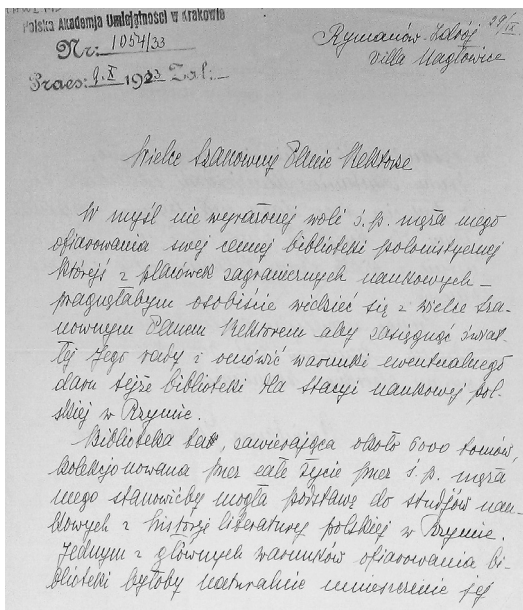 Polska Akademja Umiejętności w Krakowie
Nr: 1054/33
Praes: 9. X 1933 Zał:
29/IX.
Rymanów-Zdrój
Villa Nagłowice
Wielce Szanowny Panie Rektorze
W myśl nie wyrażonej woli ś. p. męża mego
ofiarowania swej cennej biblioteki polonistycznej
którejś z placówek zagranicznych naukowych –
pragnęłabym osobiście widzieć się z Wielce Sza-
nownym Panem Rektorem aby zasięgnąć świat-
łej Jego rady i omówić warunki ewentualnego
daru tejże biblioteki dla stacyi naukowej pol-
skiej w Rzymie.
Biblioteka ta, zawierająca około 6000 tomów,
kolekcjonowana przez całe życie przez ś. p. męża
mego stanowićby mogła podstawę do studjów nau-
kowych z historji literatury polskiej w Rzymie.
Jednym z głównych warunków ofiarowania bi-
blioteki byłoby naturalnie umieszczenie jej